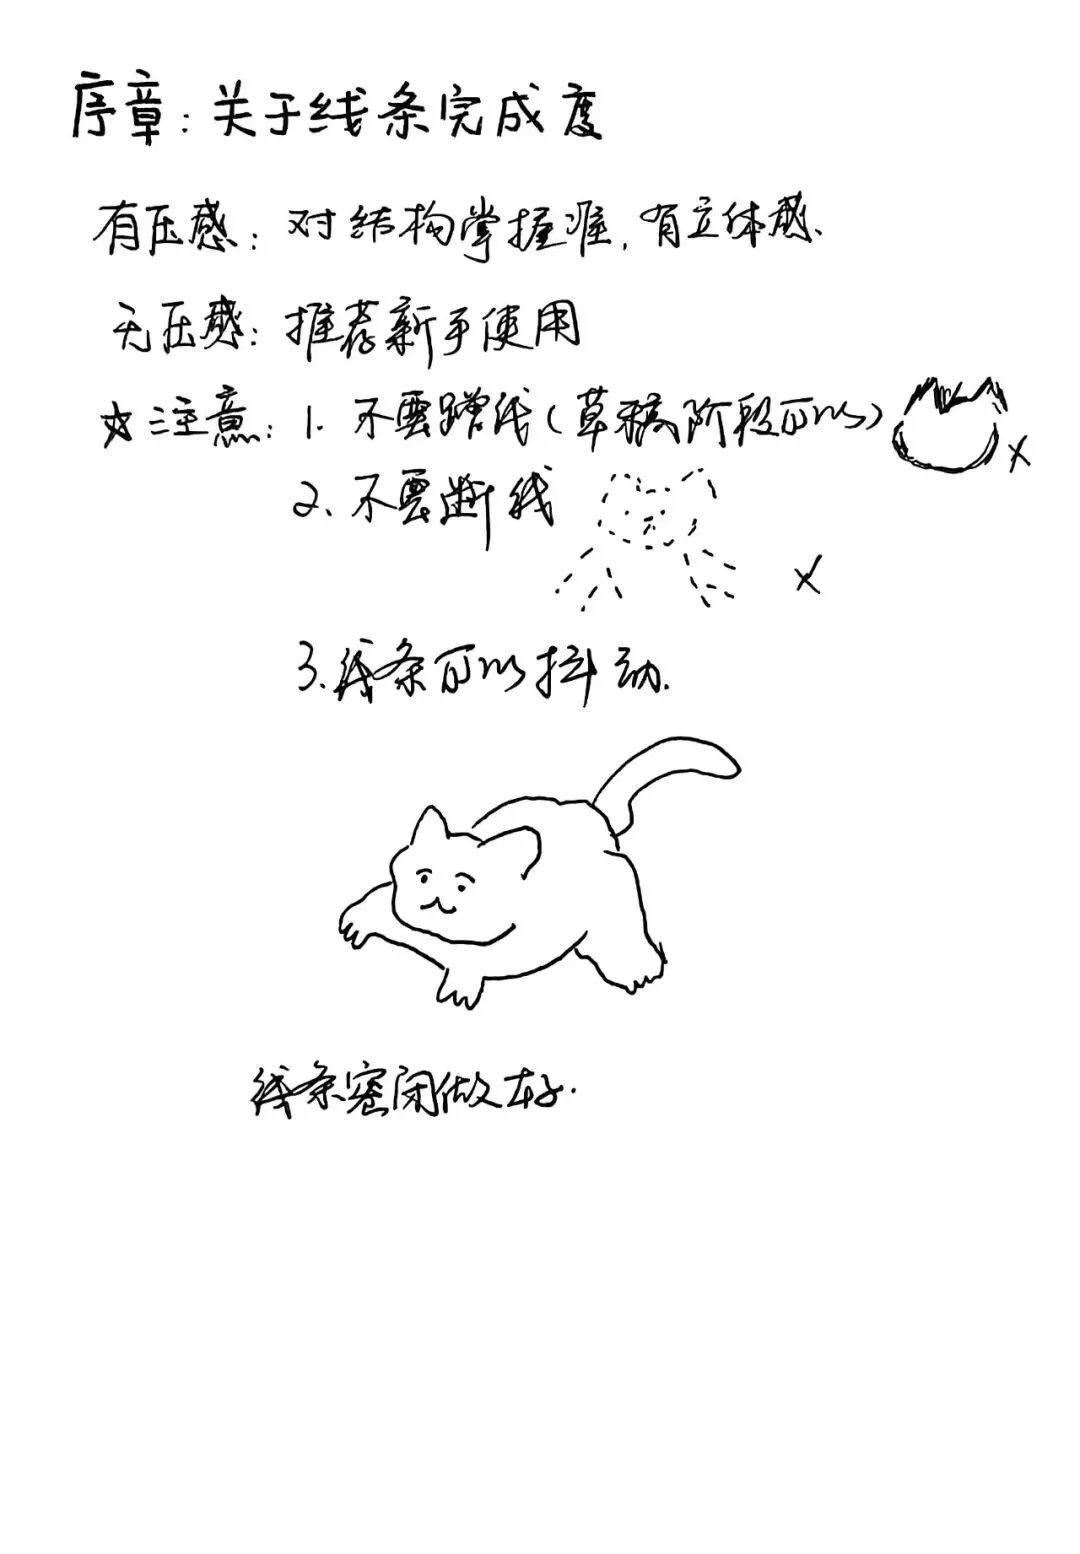 序章：关于线条完成度
有压感：对结构掌握准，有立体感、
无压感：推荐新手使用
☆注意：1. 不要蹭线（草稿阶段可以） ×
2、不要断线 ×
3.线条可以抖动.
线条密闭做好.